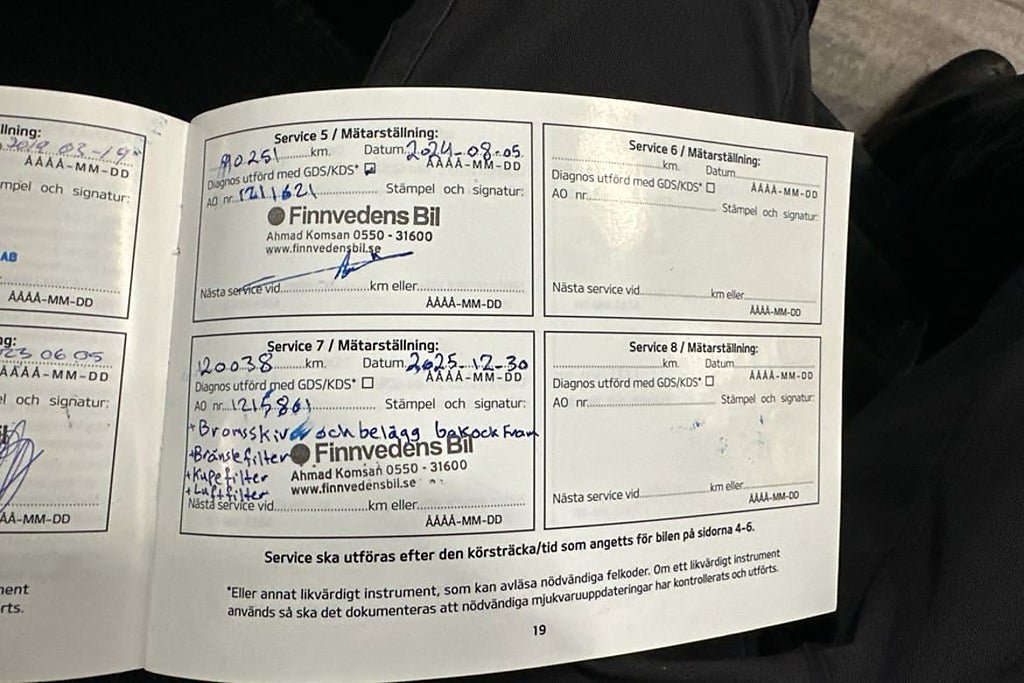 llning:
2019 03-19
ÅÅÅÅ-MM-DD
mpel och signatur:
AB
ÅÅÅÅ-MM-DD
ng:
23 06 05
ÅÅÅÅ-MM-DD
el och signatur:
ÅÅ-MM-DD
nent
rts.
Service 5 / Mätarställning:
90251 km. Datum 2024-08-05
Diagnos utförd med GDS/KDS* ÅÅÅÅ-MM-DD
AO nr. 1211621 Stämpel och signatur:
Finnvedens Bil
Ahmad Komsan 0550 - 31600
www.finnvedensbil.se
Nästa service vid km eller
ÅÅÅÅ-MM-DD
Service 6 / Mätarställning:
km. Datum
Diagnos utförd med GDS/KDS* ÅÅÅÅ-MM-DD
AO nr. Stämpel och signatur:
Nästa service vid km eller
ÅÅÅÅ-MM-DD
Service 7 / Mätarställning:
120038 km. Datum 2025-12-30
Diagnos utförd med GDS/KDS* ÅÅÅÅ-MM-DD
AO nr. 1215861 Stämpel och signatur:
+Bromsskivor och belägg bak ock Fram
+Bränslefilter Finnvedens Bil
+Kupefilter Ahmad Komsan 0550 - 31600
+Luftfilter www.finnvedensbil.se
Nästa service vid km eller
ÅÅÅÅ-MM-DD
Service 8 / Mätarställning:
km. Datum
Diagnos utförd med GDS/KDS* ÅÅÅÅ-MM-DD
AO nr. Stämpel och signatur:
Nästa service vid km eller
ÅÅÅÅ-MM-DD
Service ska utföras efter den körsträcka/tid som angetts för bilen på sidorna 4-6.
*Eller annat likvärdigt instrument, som kan avläsa nödvändiga felkoder. Om ett likvärdigt instrument
används så ska det dokumenteras att nödvändiga mjukvaruuppdateringar har kontrollerats och utförts.
19